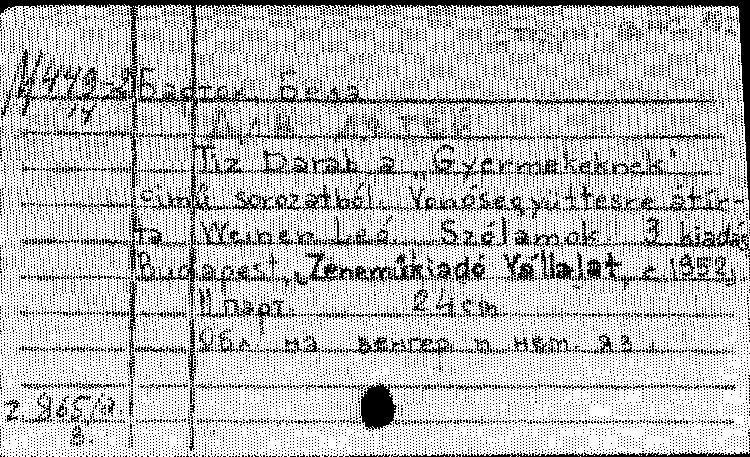 Барток, Бела
Tiz Darab a „Gyermekeknek"
cimű sorozatból. Vonósegyüttesre átír-
ta Weiner Leó. Szólamok. 3 kiadás
Budapest, Zeneműkiadó Vállalat, c 1952
11 парт. 24 cm
Обл. на венгер и нем. яз.
г. 865/